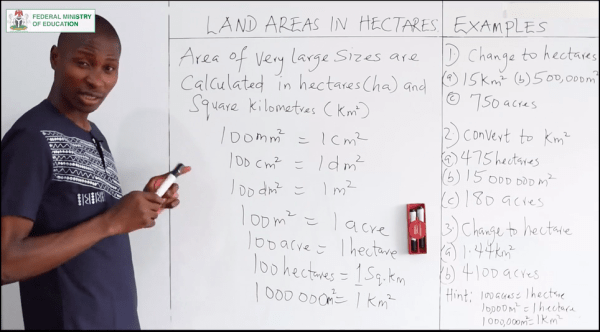 FEDERAL MINISTRY
OF EDUCATION
LAND AREAS IN HECTARES
Area of Very Large Sizes are
Calculated in hectares (ha) and
Square Kilometres (Km²)
100mm² = 1cm²
100cm² = 1dm²
100dm² = 1m²
100m² = 1 acre
100acre = 1hectare
100hectares = 1Sq.km
1000 000m² = 1Km²
EXAMPLES
1) Change to hectares
(a) 15Km² (b) 500,000m²
(c) 750 acres
2) Convert to Km²
(a) 475 hectares
(b) 15 000 000m²
(c) 180 acres
3) Change to hectare
(a) 1.44Km²
(b) 4100 acres
Hint: 100 acres = 1hectare
10000m² = 1hectare
1000,000m² = 1Km²